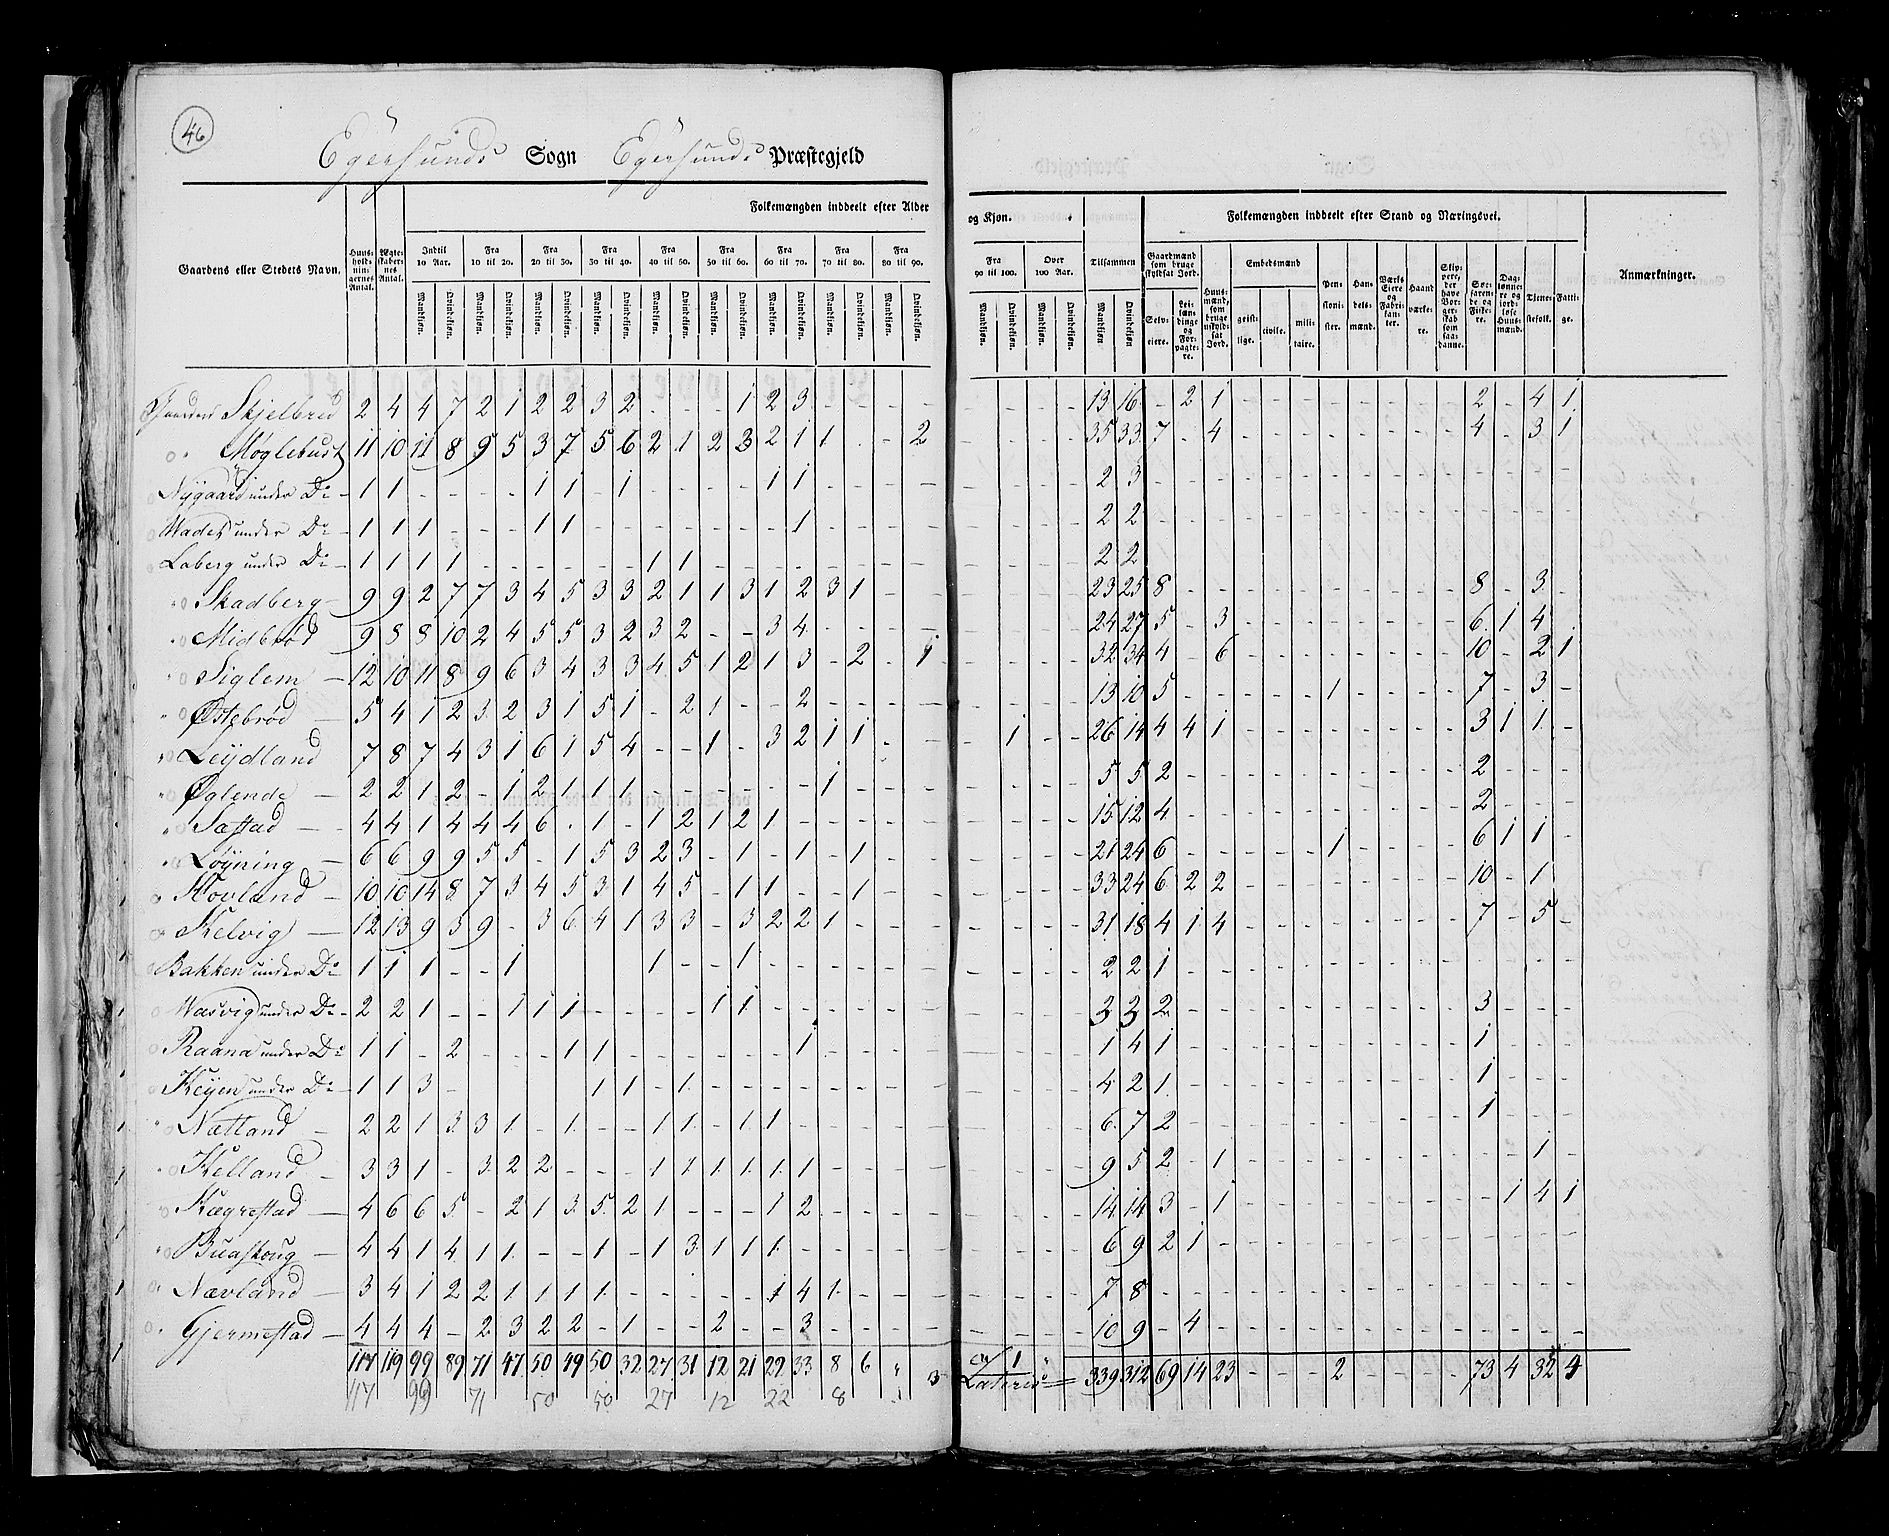 46
Egersunds Sogn Egersunds Præstegjeld
Folkemængden inddeelt efter Alder og Kjøn. Folkemængden inddeelt efter Stand og Næringsvei.
Gaardens eller Stedets Navn. Huusholdningernes Antal. Ægteskabernes Antal. Indtil 10 Aar. Fra 10 til 20. Fra 20 til 30. Fra 30 til 40. Fra 40 til 50. Fra 50 til 60. Fra 60 til 70. Fra 70 til 80. Fra 80 til 90. Fra 90 til 100. Over 100 Aar. Tilsammen Gaardmænd som bruge skyldsat Jord. Huusmænd, som bruge uskyldsat Jord. Embedsmænd Pensionister. Handelsmænd. Værks Eiere og Fabrikanter. Haandværkere. Skippere, der have Borgerskab som saadanne. Søefarende og Fiskere. Daglønnere og jordløse Huusmænd. Tjenestefolk. Fattige. Anmærkninger.
Mandkjøn. Qvindekjøn. Mandkjøn. Qvindekjøn. Mandkjøn. Qvindekjøn. Mandkjøn. Qvindekjøn. Mandkjøn. Qvindekjøn. Mandkjøn. Qvindekjøn. Mandkjøn. Qvindekjøn. Mandkjøn. Qvindekjøn. Mandkjøn. Qvindekjøn. Mandkjøn. Qvindekjøn. Mandkjøn. Qvindekjøn. Mandkjøn Qvindekjøn Selveiere. Leilændinge og Forpagtere. geistlige. civile. militaire.
Gaarden Skjelbred 2 4 4 7 2 1 2 2 3 2 - - - 1 2 3 - - - - - - - - 13 16 - 2 1 - - - - - - - - 2 - 4 1
" Møglebust 11 10 11 8 9 5 3 7 5 6 2 1 2 3 2 1 1 - - 2 - - - - 35 33 7 - 4 - - - - - - - - 4 - 3 1
Nygaard under Do 1 1 - - - - 1 1 - 1 - - - - 1 1 - - - - - - - - 2 3 - - - - - - - - - - - - - - -
Wades under Do 1 1 1 - - - 1 1 - - - - - - - 1 - - - - - - - - 2 2 - - - - - - - - - - - - - - -
Laberg under Do 1 1 1 1 - - - - - - 1 1 - - - - - - - - - - - - 2 2 - - - - - - - - - - - - - - -
" Skadberg 9 9 2 7 7 3 4 5 3 3 2 1 1 3 1 2 3 1 - - - - - - 23 25 8 - - - - - - - - - - 8 - 3 -
" Midbrød 9 8 8 10 2 4 5 5 3 2 3 2 - - 3 4 - - - - - - - - 24 27 5 - 3 - - - - - - - - 6 1 4 -
" Siglem 12 10 11 8 9 6 3 4 3 3 4 5 1 2 1 3 - 2 - 1 - - - - 32 34 4 - 6 - - - - - - - - 10 - 2 1
" Østebrød 5 4 1 2 3 2 3 1 5 1 - 2 1 - - 2 - - - - - - - - 13 10 5 - - - - - 1 - - - - 7 - 3 -
" Leijdland 7 8 7 4 3 1 6 1 5 4 - - 1 - 3 2 1 1 - - - 1 - - 26 14 4 4 1 - - - - - - - - 3 1 1 -
" Øglende 2 2 1 2 - 1 2 1 1 1 - - - - - - 1 - - - - - - - 5 5 2 - - - - - - - - - - 2 - - -
" Sastad 4 4 1 4 4 4 6 - 1 - 1 2 1 2 1 - - - - - - - - - 15 12 4 - - - - - - - - - - 2 - - -
" Løijning 6 6 9 9 5 5 - 1 5 3 2 3 - 1 - 1 - 1 - - - - - - 21 24 6 - - - - - 1 - - - - 6 1 1 -
Hovland 10 10 14 8 7 3 4 5 3 1 4 5 - 1 1 - - 1 - - - - - - 33 24 6 2 2 - - - - - - - - 10 - 1 -
Kelvig 12 13 9 3 9 - 3 6 4 1 3 3 - 3 2 2 1 - - - - - - - 31 18 4 1 4 - - - - - - - - 7 - 5 -
Bakken under Do 1 1 1 - - 1 - - - - 1 - - 1 - - - - - - - - - - 2 2 1 - - - - - - - - - - - - - -
Wasvig under Do 2 2 1 - - 1 1 1 - - - - 1 1 - - - - - - - - - - 3 3 2 - - - - - - - - - - 3 - - -
Raana under Do 1 1 - 2 - - - 1 1 - - - - - - 1 - - - - - - - - 1 4 1 - - - - - - - - - - 1 - - -
Keijen under Do 1 1 3 - - - - - 1 1 - 1 - - - - - - - - - - - - 4 2 1 - - - - - - - - - - 1 - - -
" Nætland 2 2 1 3 3 1 - 1 - - 1 1 - 1 1 - - - - - - - - - 6 7 2 - - - - - - - - - - 1 - - -
" Kelland 3 3 1 - 3 2 2 - - - 1 1 1 1 1 1 - - - - - - - - 9 5 2 - 1 - - - - - - - - - - 1 -
" Kægrestad 4 6 6 5 - 2 1 3 5 2 1 - - - 1 2 - - - - - - - - 14 14 3 - 1 - - - - - - - - - 1 4 1
" Buaskoug 4 4 1 4 1 1 - - 1 - 1 3 1 1 1 - - - - - - - - - 6 9 2 1 - - - - - - - - - - - - -
Nævland 3 4 1 2 2 1 1 1 1 - - - - - 1 4 1 - - - - - - - 7 8 - - - - - - - - - - - - - - -
" Gjermestad 4 4 4 - 2 3 2 2 - 1 - - 2 - - 3 - - - - - - - - 10 9 - 4 - - - - - - - - - - - - -
117 119 99 89 71 47 50 49 50 32 27 31 12 21 22 33 8 6 " 3 1 " Lateris 339 312 69 14 23 - - - 2 - - - - 73 4 32 4
117 99 71 50 50 27 12 22 8